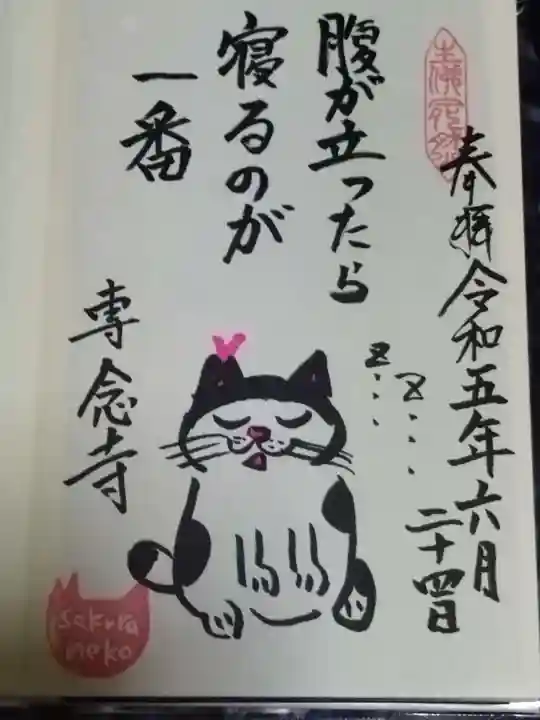 奉拝 令和五年六月
二十四日
腹が立ったら
寝るのが
一番
z...
z....
専念寺
sakura
neko